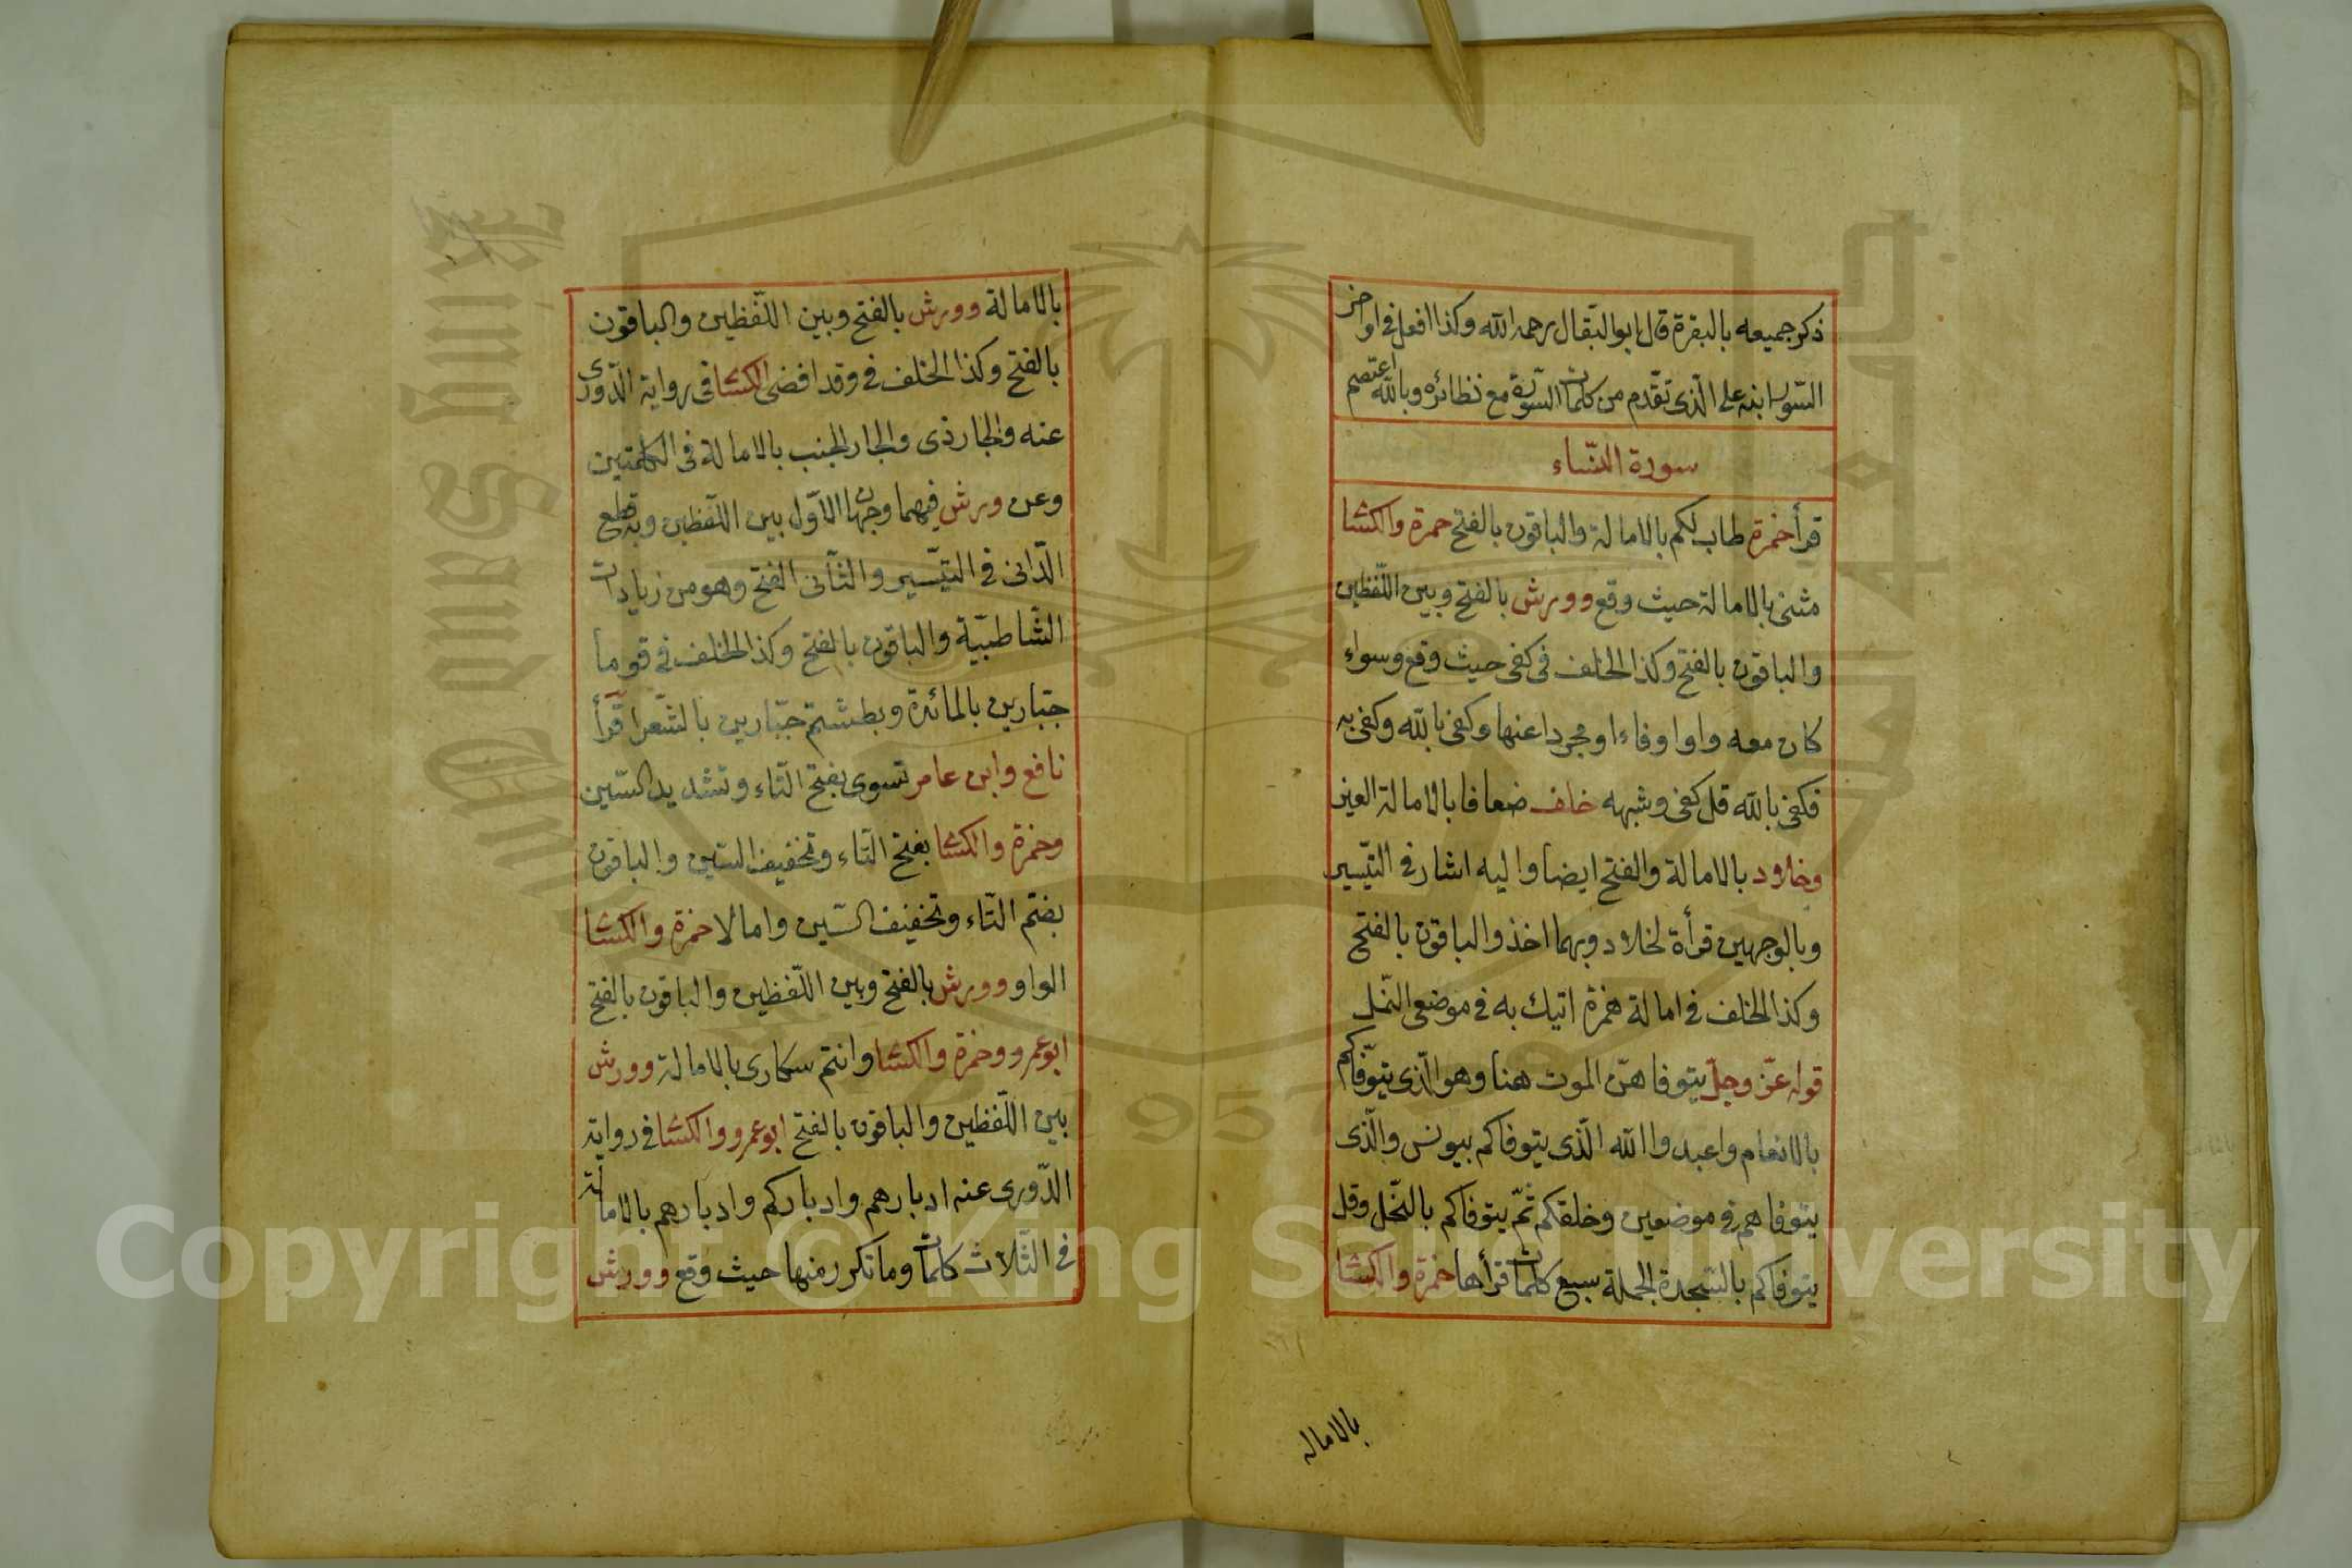 ذكر جميعه بالبقرة قال ابو البقال رحمه الله وكذا افعل في اواخر
السّور ابنه على الّذى تقّدم من كلمات السّورة مع نظائره وبالله اعتصم
سورة النّساء
قرأ حمزة طاب لكم بالامالة والباقون بالفتح حمزة والكسا
مثنى بالامالة حيث وقع وورش بالفتح وبين اللّفظين
والباقون بالفتح وكذا الخلف فى كفى حيث وقع وسواء
كان معه واوا وفاءا ومجردا عنها وكفى بالله وكفى به
فكفى بالله قل كفى وشبهه خلف ضعافا بالامالة العين
وخلاد بالامالة والفتح ايضا واليه اشار فى التيّسير
وبالوجهين قرأة لخلاد وبهما اخذ والباقون بالفتح
وكذا الخلف فى امالة همزة اتيك به فى موضعى النّمل
قوله عزّ وجلّ يتوفاهنّ الموت هنا وهو الّذى يتوّفاكم
بالانعام واعبدوا الله الّذى يتوفاكم بيونس والّذى
يتوفاهم فى موضعين وخلقكم ثمّ يتوفاكم بالنّحل وقل
يتوفاكم بالسّجدة الجملة سبع كلمات قرأها حمزة والكسا
بالاماله
بالامالة وورش بالفتح وبين اللّفظين والباقون
بالفتح وكذا الخلف فى وقد افضى الكسائى فى رواية الدّورى
عنه والجار ذى والجار الجنب بالامالة فى الكلمتين
وعن ورش فيهما وجهان الاّول بين اللّفظين وبه قطع
الدّانى فى التيّسير والثّانى الفتح وهو من زيادات
الشّاطبيّة والباقون بالفتح وكذا الخلف فى قوما
جبّارين بالمائدة وبطشتم جبّارين بالشّعرا قرأ
نافع وابن عامر تسوى بفتح التّاء وتشديد السّين
وحمزة والكسا بفتح التّاء وتخفيف السّين والباقون
بضم التّاء وتخفيف السّين وامالا حمزة والكسا
الواو وورش بالفتح وبين اللّفظين والباقون بالفتح
ابو عمرو وحمزة والكسا وانتم سكارى بالامالة وورش
بين اللّفظين والباقون بالفتح ابو عمرو والكسا فى رواية
الدّورى عنه ادبارهم وادباركم وادبارهم بالامالة
فى الثّلاث كلمات وما تكرر منها حيث وقع وورش
Copyright © King Saud University
King Saud University
1957